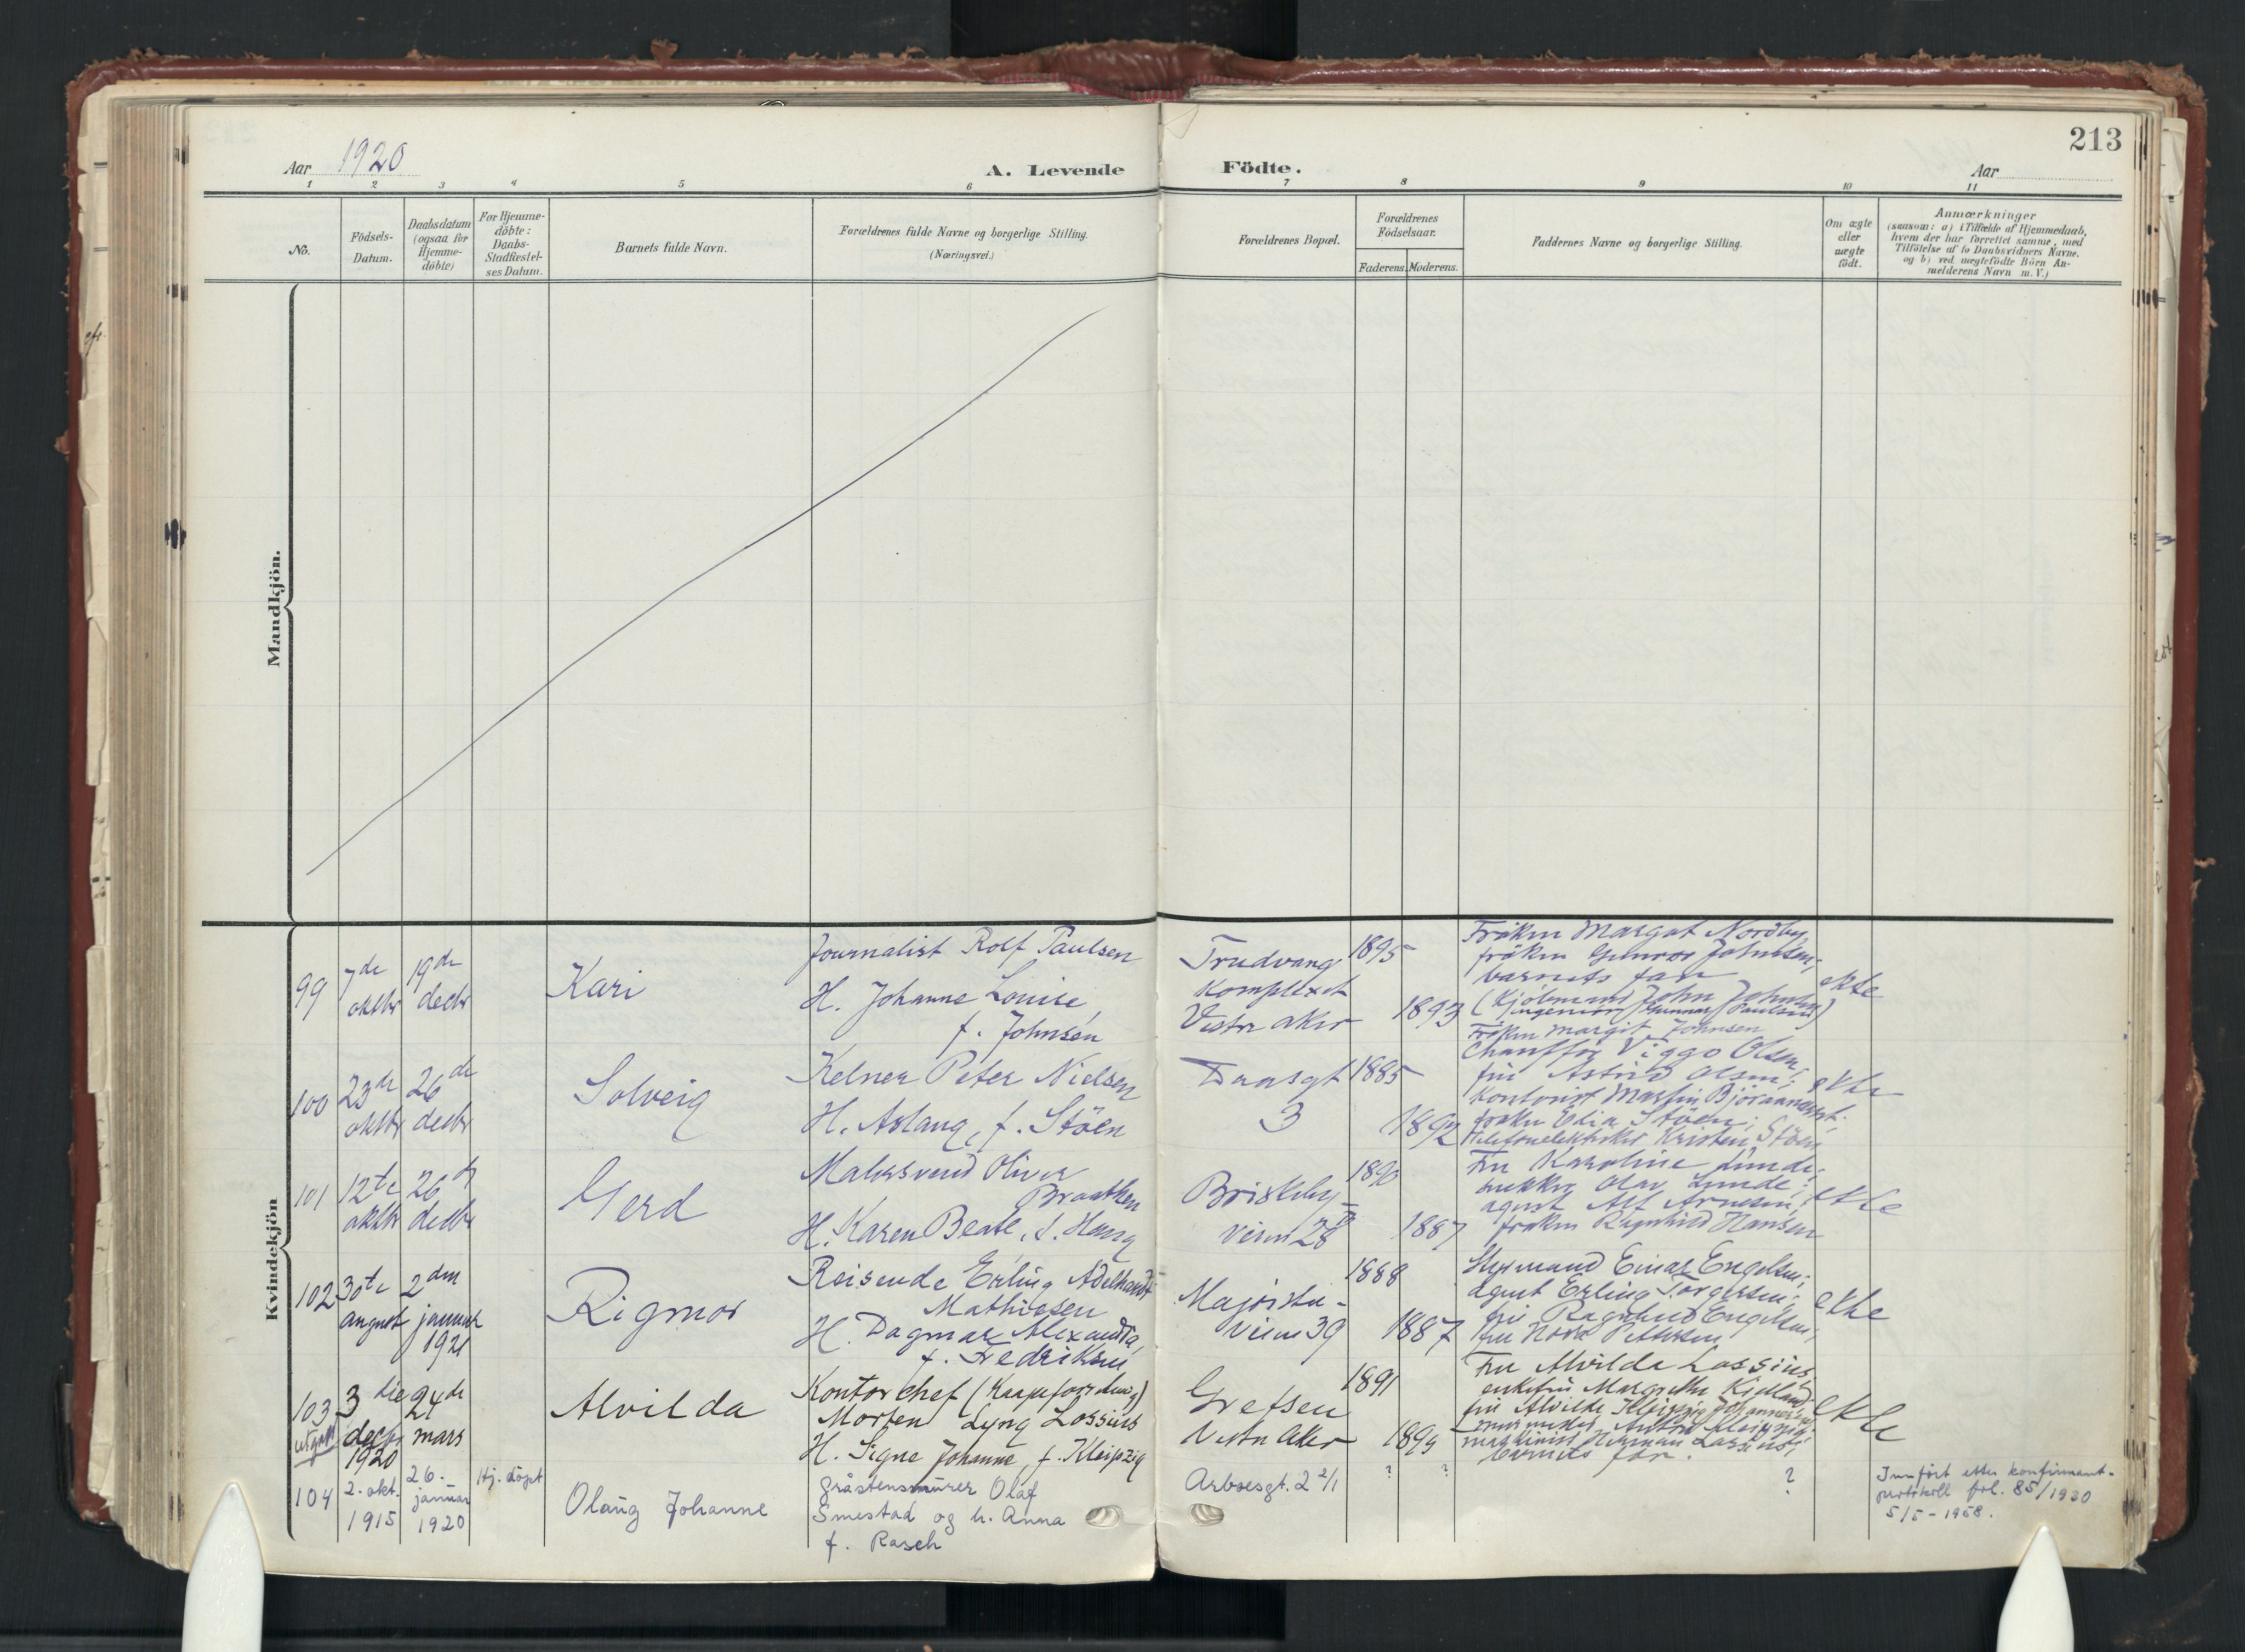 213
Aar 1920
A. Levende
Födte.
Aar
1 2 3 4 5 6 7 8 9 10 11
No.
Födsels-
Datum.
Daabsdatum
(ogsaa for
Hjemme-
döbte)
For Hjemme-
döbte:
Daabs-
Stadfæstel-
ses Datum.
Barnets fulde Navn.
Forældrenes fulde Navne og borgerlige Stilling.
(Næringsvei.)
Forældrenes Bopæl.
Forældrenes
Födselsaar.
Faderens. Moderens.
Faddernes Navne og borgerlige Stilling.
Om ægte
eller
uægte
födt.
Anmærkninger
(saasom: a) i Tilfælde af Hjemmedaab,
hvem der har forrettet samme, med
Tilföielse af to Daabsvidners Navne.
og b) ved uægtefödte Börn An-
melderens Navn m. V.)
Mandkjön.
Kvindekjön
99
7de
oktbr
19de
decbr
Kari
Journalist Rolf Paulsen
H. Johanne Louise,
f. Johnsen
Trudvang
Komplexet
Vestre Aker
1895
1893
Fröken Margot Nordby,
fröken Gunvor Johnsen;
barnets far
(Kjöbmand John Johnsen)
ingeniör Gunnar Paulsen
Fröken Margit Johnsen
ekte
100
23de
oktbr
26de
decbr
Solveig
Kelner Peter Nielsen
H. Aslaug, f. Stöen
Daasgt
3
1885
1892
Chaufför Viggo Olsen,
fru Astrid Olsen;
Kontorist Martin
fröken Edia Stöen;
Telefonelektriker Kristen Stöen
ekte
101
12te
oktbr
26de
decbr
Gerd
Malersvend Oliver
Braathen
H. Karen Beate, f. Haug
Briskeby-
veien 28
1890
1887
Fru Karoline Lunde;
snekker Olav Lunde;
agent Alf Arnesen,
fröken Ragnhild Hansen
ekte
102
30te
august
2den
januar
1921
Rigmor
Reisende Erling Adelhardt
Mathiesen
H. Dagmar Alexandra,
f. Fredriksen
Majorstu-
veien 39
1888
1887
Styrmand Einar Engelsen;
agent Erling Torgersen;
fru Ragnhild Engelsen;
fru Nora Pettersen
ekte
103
utgaat
3die
decbr
1920
24de
mars
Alvilda
Kontorchef (Kaapeforretning)
Morten Lyng Lossius
H. Signe Johanne, f. Kleipzig
Grefsen
Vestre Aker
1891
1899
Fru Alvilde Lossius,
enkefru Margrethe Kielland,
fru Alvilde Kleipzig
murmester Anton Kleipzig,
maskinist Herman Lossius;
barnets far.
ekte
104
2. okt.
1915
26.
januar
1920
Hj. döpt
Olaug Johanne
Gråstensmurer Olaf
Smestad og h. Anna
f. Rasch
Arboesgt. 2 2/1
?
?
?
Innfört etter konfirmant-
protokoll fol. 85/1930
5/5-1958.